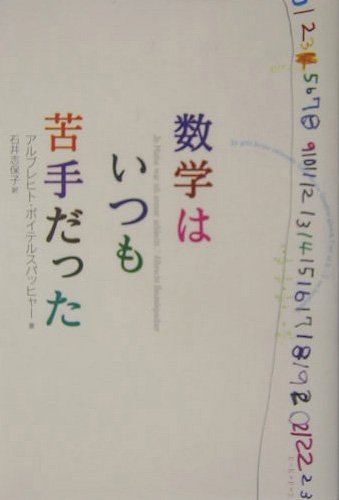 数学は
いつも
苦手だった
アルブレヒト・ボイテルスパッヒャー 著
石井志保子 訳
In Mathe war ich immer schlecht... Albrecht Beutelspacher
0 1 2 3 4 5 6 7 8 9 10 11 12 13 14 15 16 17 18 19 2 0 21 22 23